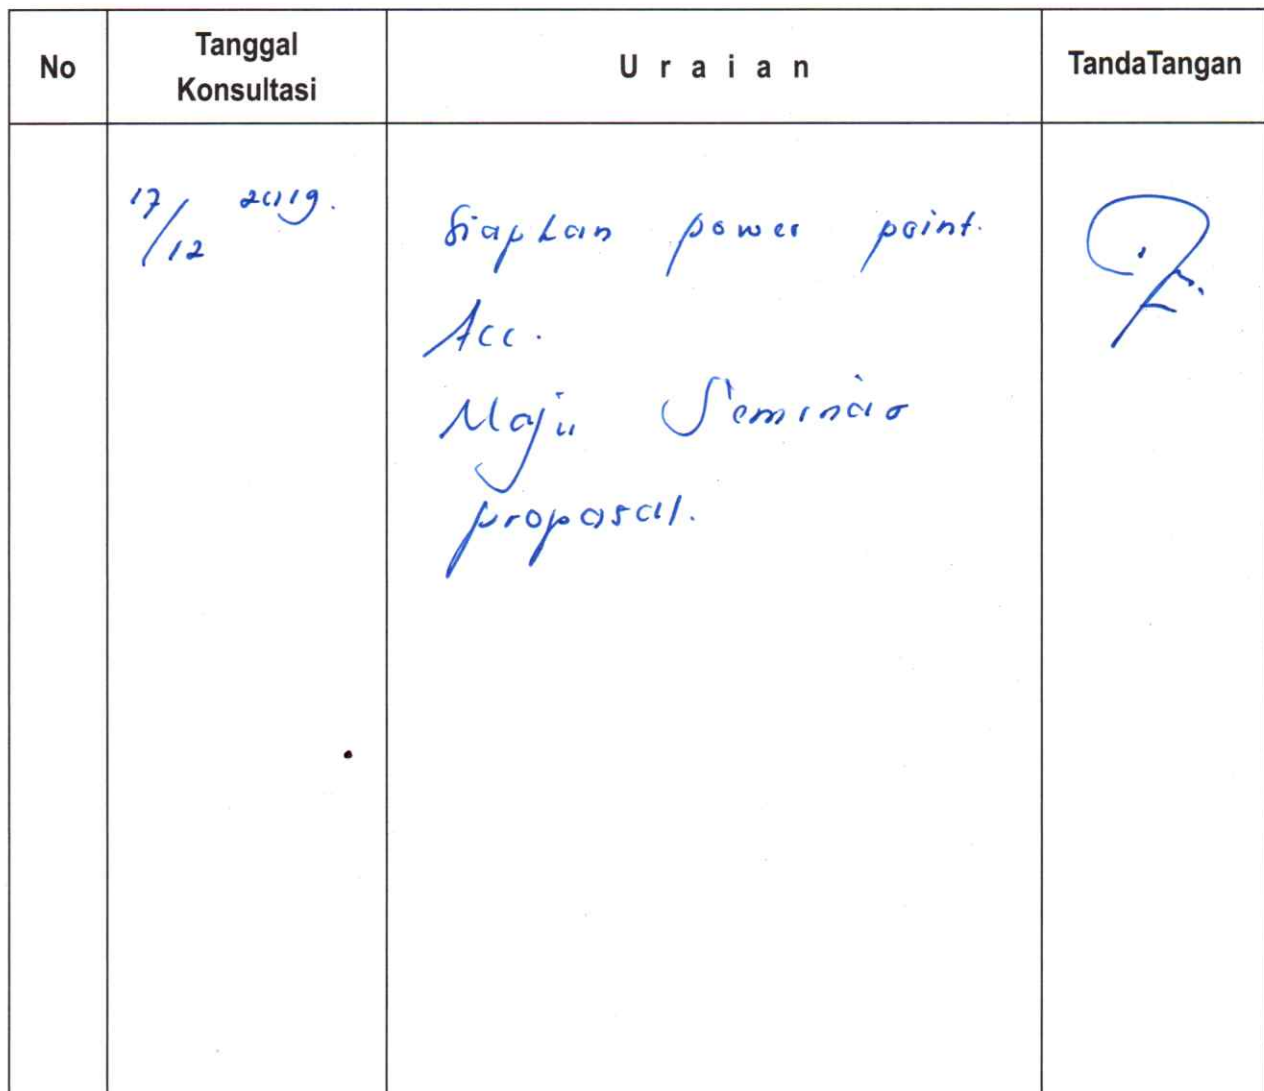 No Tanggal Konsultasi Uraian TandaTangan
17/12 2019. Siapkan power point.
Acc.
Maju Seminar
proposal.